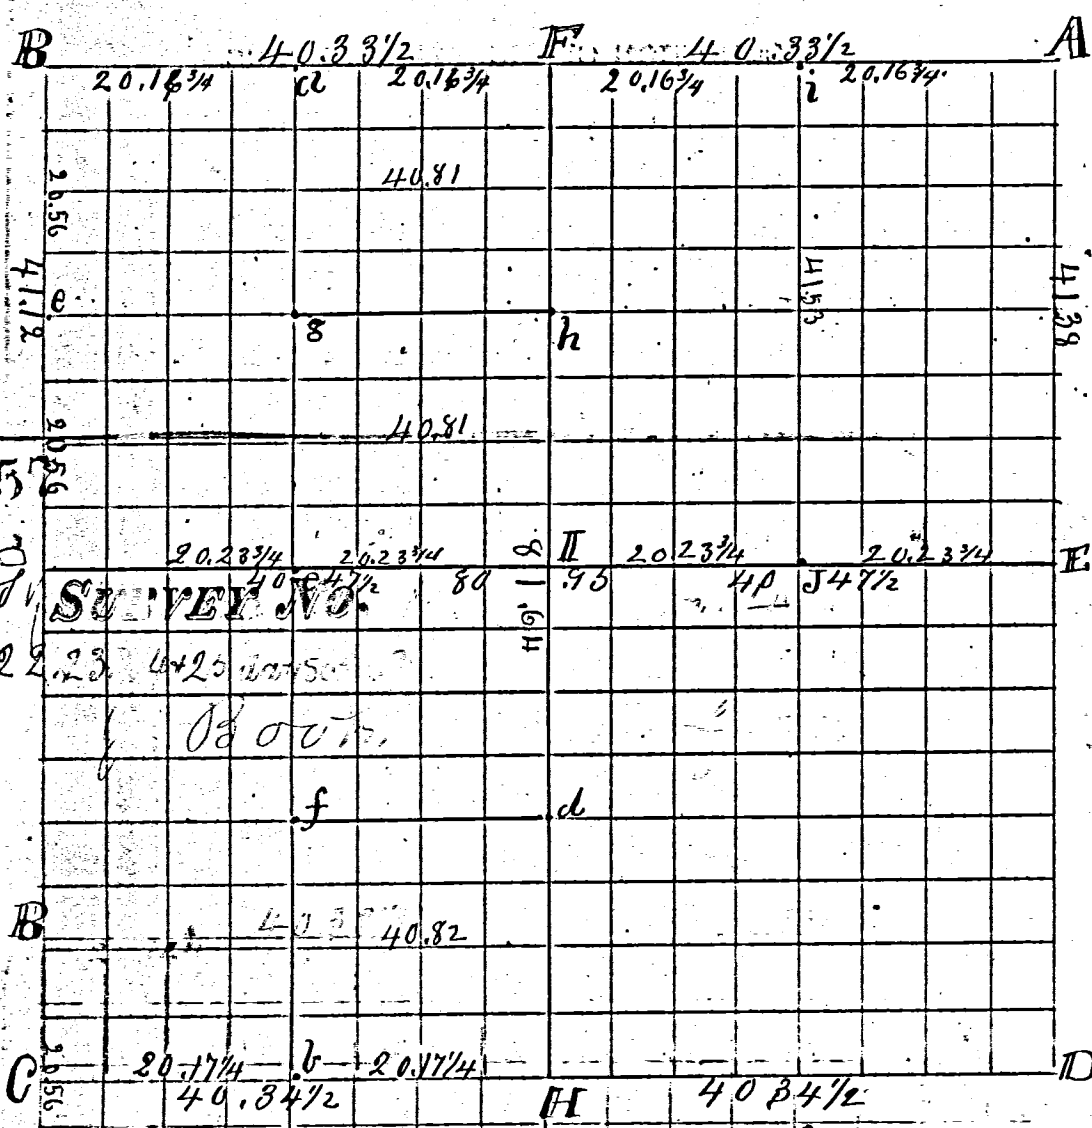 B 40.33½ F 40.33½ A
20.16¾ a 20.16¾ 20.16¾ i 20.16¾
40.81
20.56
41.12
e
g h
41.53
41.39
40.81
20.56
20.23¾ 20.23¾ I 20.23¾ 20.23¾ E
40 47½ 80 .95 40 J 47½
81.64
SURVEY NO.
f d
B
40.82
C 20.17¼ b 20.17¼ D
20.56
40.34½ H 40 34½